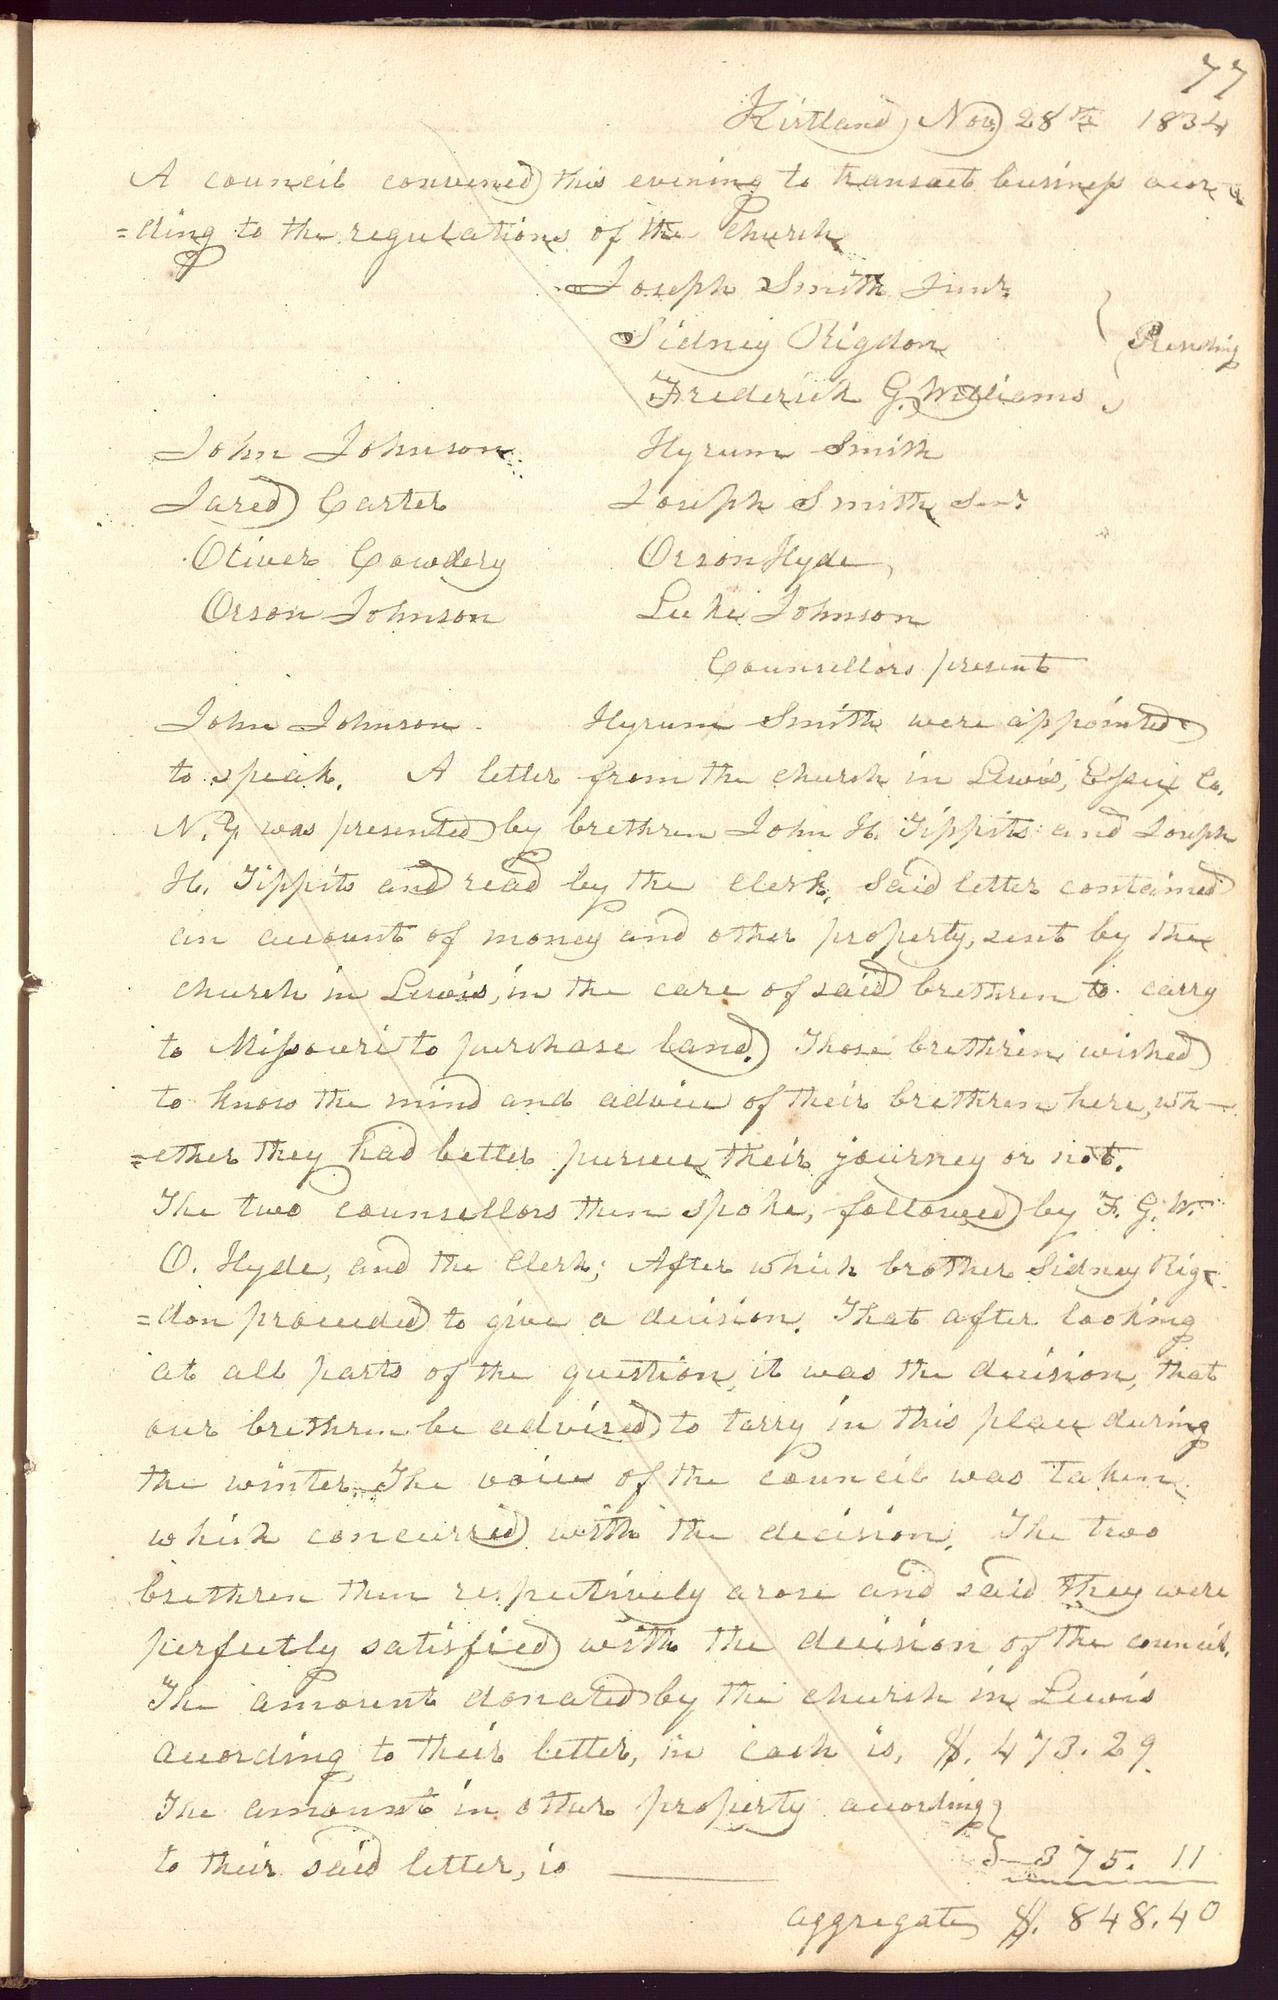 77
Kirtland, Nov. 28th 1834
A council convened this evening to transact business accor
=ding to the regulations of the Church
Joseph Smith Junr.
Sidney Rigdon } Presiding
Frederick G. Williams,
John Johnson Hyrum Smith
Jared Carter Joseph Smith Senr.
Oliver Cowdery Orson Hyde,
Orson Johnson Luke Johnson
Counsellors present
John Johnson. Hyrum Smith were appointed
to speak. A letter from the church in Lewis, Essex Co.
N.Y. was presented by brethren John H. Tippits and Joseph
H. Tippits and read by the clerk. Said letter contained
an account of money and other property, sent by the
church in Lewis, in the care of said brethren to carry
to Missouri to purchase land. Those brethren wished
to know the mind and advice of their brethren here, wh-
=ether they had better pursue their journey or not.
The two counsellors then spoke, followed by F. G. W.
O. Hyde, and the clerk; After which brother Sidney Rig-
=don proceeded to give a decision. That after looking
at all parts of the question, it was the decision, that
our brethren be advised to tarry in this place during
the winter. The voice of the council was taken
which concurred with the decision. The two
brethren then respectively arose and said they were
perfectly satisfied with the decision of the council.
The amount donated by the church in Lewis
according to their letter, in cash is, $. 473.29.
The amount in other property according }
to their said letter, is 375. 11
aggregate, $. 848.40